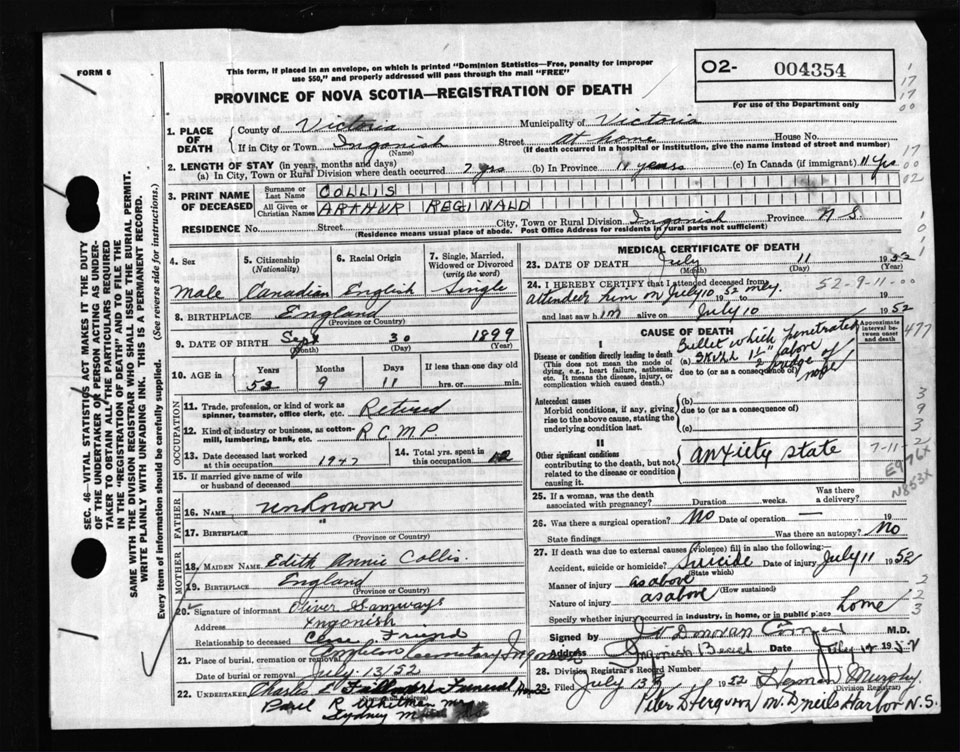 FORM 6
This form, if placed in an envelope, on which is printed "Dominion Statistics—Free, penalty for improper
use $50," and properly addressed will pass through the mail "FREE"
O2- 004354
For use of the Department only
PROVINCE OF NOVA SCOTIA—REGISTRATION OF DEATH
SEC. 46—VITAL STATISTICS ACT MAKES IT THE DUTY
OF THE UNDERTAKER OR PERSON ACTING AS UNDER-
TAKER TO OBTAIN ALL THE PARTICULARS REQUIRED
IN THE "REGISTRATION OF DEATH" AND TO FILE THE
SAME WITH THE DIVISION REGISTRAR WHO SHALL ISSUE THE BURIAL PERMIT.
WRITE PLAINLY WITH UNFADING INK. THIS IS A PERMANENT RECORD.
Every item of information should be carefully supplied. (See reverse side for instructions.)
1. PLACE OF DEATH
County of Victoria Municipality of Victoria
If in City or Town Ingonish Street At home House No.
(Name) (If death occurred in a hospital or institution, give the name instead of street and number)
2. LENGTH OF STAY (in years, months and days)
(a) In City, Town or Rural Division where death occurred 7 yrs (b) In Province 11 years (c) In Canada (if immigrant) 11 yrs
3. PRINT NAME OF DECEASED
Surname or Last Name COLLIS
All Given or Christian Names ARTHUR REGINALD
RESIDENCE No. Street City, Town or Rural Division Ingonish Province N S.
(Residence means usual place of abode. Post Office Address for residents in rural parts not sufficient)
4. Sex Male
5. Citizenship (Nationality) Canadian
6. Racial Origin English
7. Single, Married, Widowed or Divorced (write the word) Single
8. BIRTHPLACE England
(Province or Country)
9. DATE OF BIRTH Sept 30 1899
(Month) (Day) (Year)
10. AGE in Years 52 Months 9 Days 11 If less than one day old hrs. or min.
OCCUPATION
11. Trade, profession, or kind of work as spinner, teamster, office clerk, etc. Retired
12. Kind of industry or business, as cotton-mill, lumbering, bank, etc. R C M P
13. Date deceased last worked at this occupation 1947
14. Total yrs. spent in this occupation 12
15. If married give name of wife or husband of deceased
FATHER
16. NAME unknown
17. BIRTHPLACE "
(Province or Country)
MOTHER
18. MAIDEN NAME Edith Annie Collis.
19. BIRTHPLACE England
(Province or Country)
20. Signature of informant Oliver Samways
Address Ingonish
Relationship to deceased Close Friend
21. Place of burial, cremation or removal Anglican Cemetary Ingonish
Date of burial or removal July 13/52
22. UNDERTAKER Charles Fillmore Funeral Home
R Whitman
Sydney Mines
MEDICAL CERTIFICATE OF DEATH
23. DATE OF DEATH July 11 1952
(Month) (Day) (Year)
24. I HEREBY CERTIFY that I attended deceased from
attended him on July 10 52 only. 19 to
and last saw him alive on July 10 1952
52-9-11-00
CAUSE OF DEATH
Approximate interval between onset and death
I
Disease or condition directly leading to death
(This does not mean the mode of dying, e.g., heart failure, asthenia, etc. It means the disease, injury, or complication which caused death.)
(a) Bullet which penetrated
SKULL 1½" above
bridge of
nose
due to (or as a consequence of)
Antecedent causes
Morbid conditions, if any, giving rise to the above cause, stating the underlying condition last.
(b)
due to (or as a consequence of)
(c)
II
Other significant conditions
contributing to the death, but not related to the disease or condition causing it.
anxiety state
7-11-2
E976X
N853X
25. If a woman, was the death associated with pregnancy? Duration weeks. Was there a delivery?
26. Was there a surgical operation? No Date of operation — 19
State findings Was there an autopsy? No
27. If death was due to external causes (violence) fill in also the following:
Accident, suicide or homicide? Suicide Date of injury July 11 1952
(State which)
Manner of injury as above
(How sustained)
Nature of injury as above
Specify whether injury occurred in industry, in home, or in public place home
Signed by Donovan Coroner M.D.
Address Ingonish Beach Date July 12 1952
28. Division Registrar's Record Number
29. Filed July 13 1952 Herman Murphy.
(Division Registrar)
Peter D Ferguson Neils Harbor N.S.